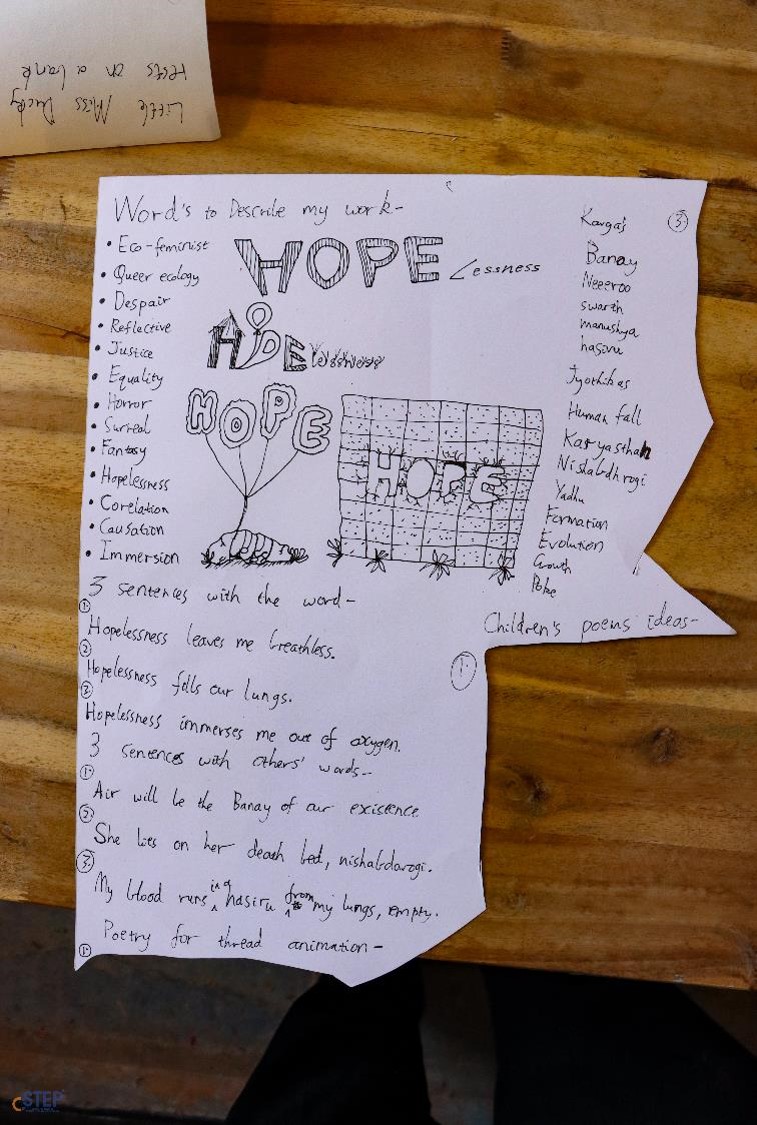 Little Miss Ducky
rests on a bank
Word's to Describe my work-
• Eco-feminist
• Queer ecology
• Despair
• Reflective
• Justice
• Equality
• Horror
• Surreal
• Fantasy
• Hopelessness
• Corelation
• Causation
• Immersion
HOPE Lessness
HOPE Lessness
HOPE
HOPE
3
Banay
Neeeroo
swarth
manushya
hasiru
Jyothikas
Human fall
Karyasthah
Nishabdhrogi
Yadhu
Formation
Evolution
Growth
Poke
3 sentences with the word-
1 Hopelessness leaves me breathless.
2 Hopelessness fills our lungs.
2 Hopelessness immerses me out of oxygen.
3 sentences with others' words-
1 Air will be the Banay of our existence
2 She lies on her death bed, nishabdarogi.
3 My blood runs hasiru from my lungs, empty.
Poetry for thread animation-
1
Children's poems ideas-
1
CSTEP